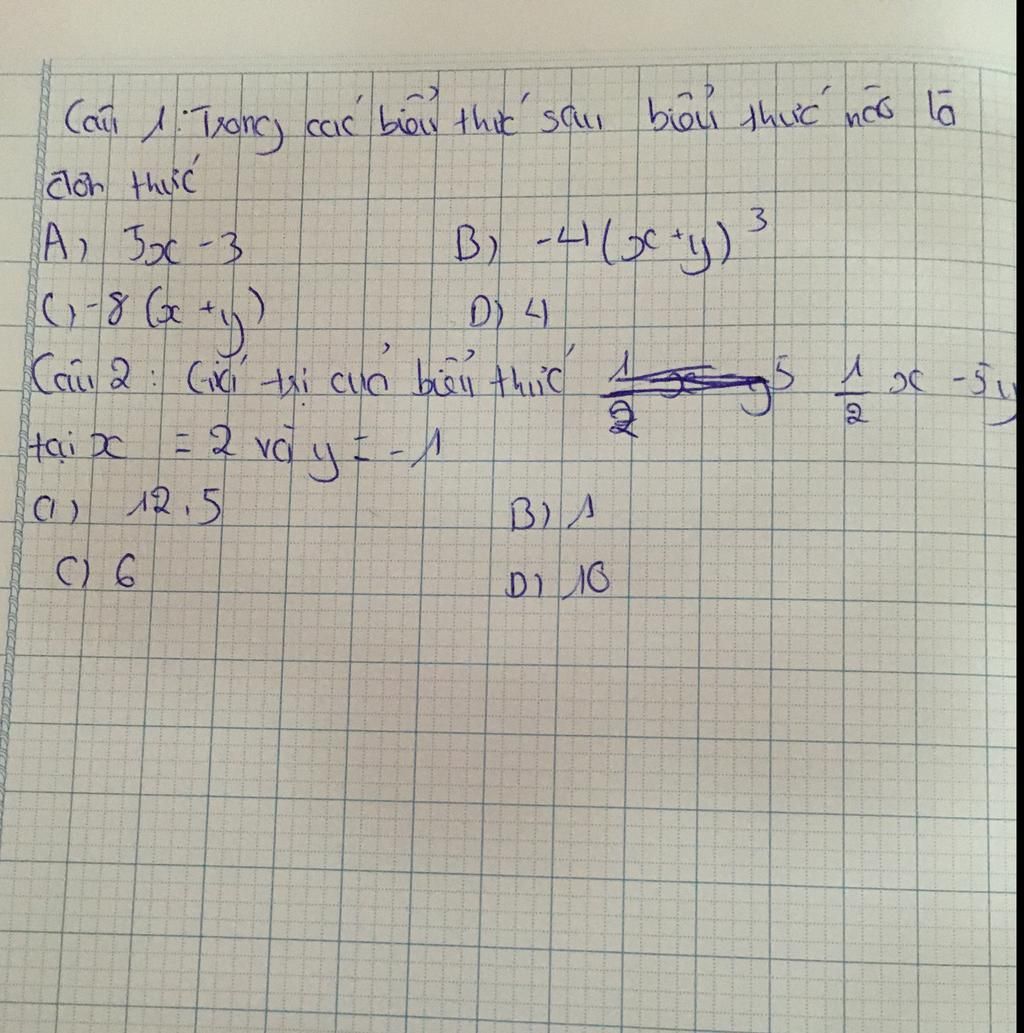 Câu 1: Trong các biểu thức sau biểu thức nào là
đơn thức
A) 5x - 3 B) -4(x+y)³
C) -8(x+y) D) 4
Câu 2: Giá trị của biểu thức 1/2 x - 5y
tại x = 2 và y = -1
a) 12.5 B) 1
C) 6 D) 10